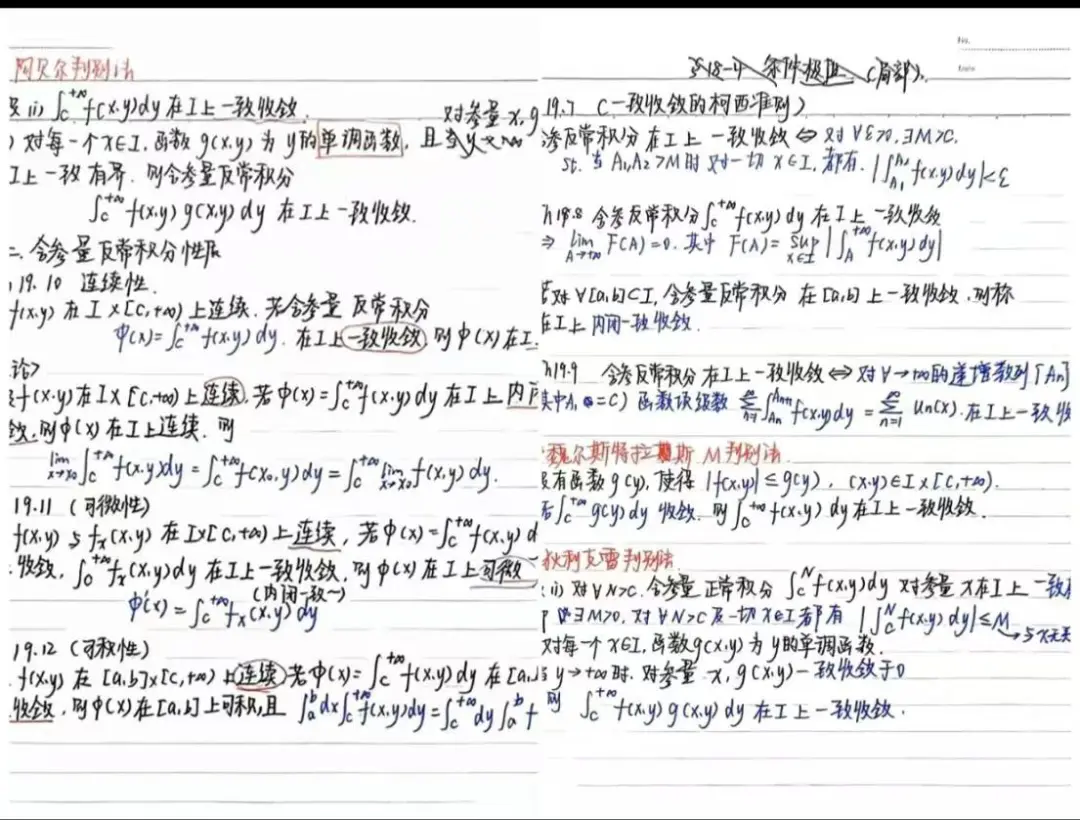 阿贝尔判别法
ii) ∫_c^{+∞} f(x,y)dy 在I上一致收敛.
) 对每一个x∈I,函数g(x,y)为y的单调函数,且 对参量x,g
I上一致有界.则含参量反常积分
∫_c^{+∞} f(x,y)g(x,y)dy 在I上一致收敛.
二.含参量反常积分性质
19.10 连续性.
f(x,y)在I×[c,+∞)上连续.若含参量反常积分
φ(x)=∫_c^{+∞} f(x,y)dy.在I上一致收敛,则φ(x)在I
论>
f(x,y)在I×[c,+∞)上连续.若φ(x)=∫_c^{+∞} f(x,y)dy在I上内闭
敛.则φ(x)在I上连续.则
lim_{x→x₀} ∫_c^{+∞} f(x,y)dy=∫_c^{+∞} f(x₀,y)dy=∫_c^{+∞} lim_{x→x₀} f(x,y)dy.
19.11 (可微性)
f(x,y)与f_x(x,y)在I×[c,+∞)上连续,若φ(x)=∫_c^{+∞} f(x,y)d
收敛,∫_0^{+∞} f_x(x,y)dy在I上一致收敛,则φ(x)在I上可微
(内闭一致~)
φ'(x)=∫_c^{+∞} f_x(x,y)dy
19.12 (可积性)
f(x,y)在[a,b]×[c,+∞)上连续 若φ(x)=∫_c^{+∞} f(x,y)dy在[a,
收敛,则φ(x)在[a,b]上可积,且 ∫_a^b dx∫_c^{+∞} f(x,y)dy=∫_c^{+∞} dy∫_a^b f
No.
Date
§18-4 条件极值 (局部).
19.7 (一致收敛的柯西准则)
含参反常积分在I上一致收敛⇔对∀ε>0,∃M>c.
st. 当A₁,A₂>M时 对一切x∈I,都有.|∫_{A₁}^{A₂} f(x,y)dy|<ε
19.8 含参反常积分∫_c^{+∞} f(x,y)dy在I上一致收敛
⇒ lim_{A→+∞} F(A)=0.其中 F(A)=sup_{x∈I}|∫_A^{+∞} f(x,y)dy|
若对∀[a,b]⊂I,含参量反常积分在[a,b]上一致收敛,则称
在I上内闭一致收敛.
19.9 含参反常积分在I上一致收敛⇔对∀→+∞的递增数列{An}
其中A₁=c) 函数项级数 ∑_{n=1}^∞ ∫_{An}^{An+1} f(x,y)dy=∑_{n=1}^∞ Un(x).在I上一致收
魏尔斯特拉斯M判别法.
设有函数g(y),使得|f(x,y)|≤g(y),(x,y)∈I×[c,+∞).
若∫_c^{+∞} g(y)dy 收敛.则∫_c^{+∞} f(x,y)dy在I上一致收敛.
狄利克雷判别法.
(i) 对∀N>c.含参量正常积分∫_c^N f(x,y)dy对参量x在I上一致有
即∃M>0,对∀N>c及一切x∈I都有 |∫_c^N f(x,y)dy|≤M
→与x无关
对每一个x∈I,函数g(x,y)为y的单调函数.
当y→+∞时.对参量x,g(x,y)一致收敛于0
则 ∫_c^{+∞} f(x,y)g(x,y)dy在I上一致收敛.